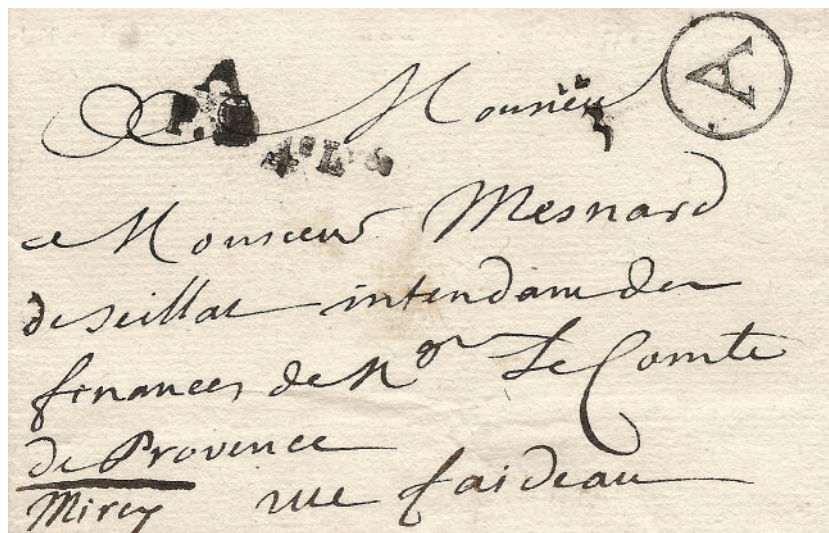 A
A
P.D
Monsieur
4e Lée
a Monsieur Mesnard
de seillac intendant des
finances de Mgr Le Comte
de Provence
rue faideau